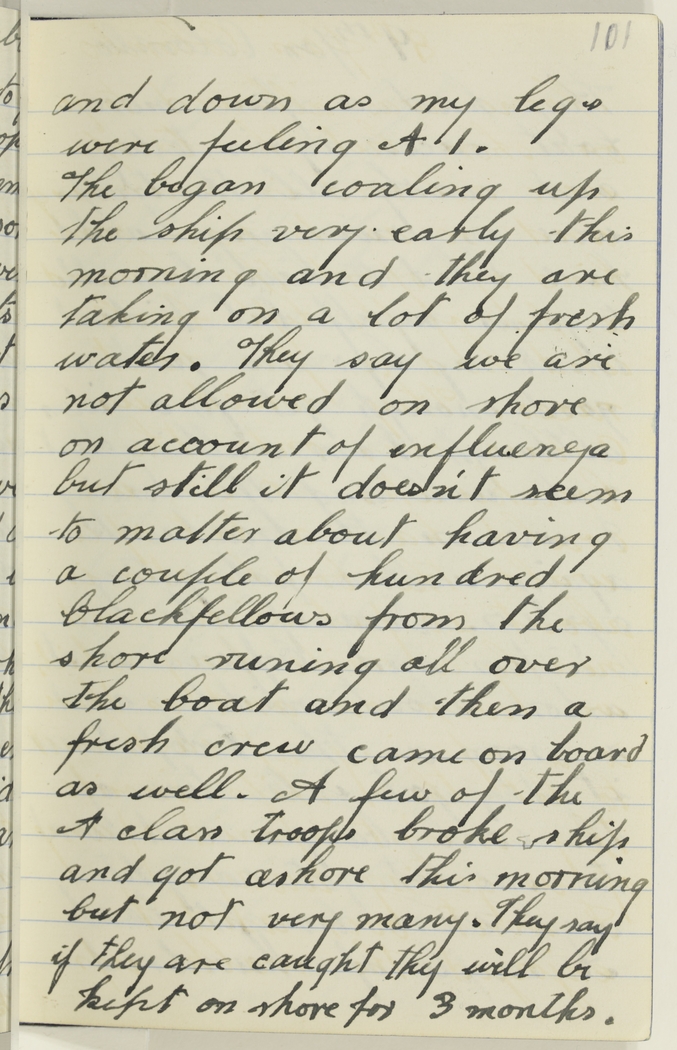 101
and down as my legs
were feeling A.1.
The began coaling up
the ship very early this
morning and they are
taking on a lot of fresh
water. They say we are
not allowed on shore
on account of influenza
but still it doesn't seem
to matter about having
a couple of hundred
blackfellows from the
shore runing all over
the boat and then a
fresh crew came on board
as well. A few of the
A class troops broke ship
and got ashore this morning
but not very many. They say
if they are caught they will be
kept on shore for 3 months.